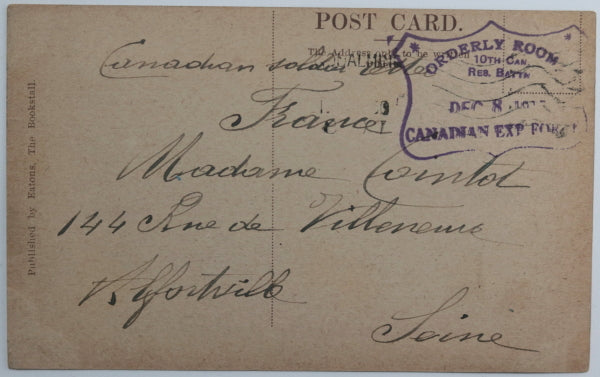 POST CARD.
The Address only to be written
Canadian soldier letter
ORDERLY ROOM
10TH CAN.
RES. BATTN
DEC 8
CANADIAN EXP FORCE
France
Madame Cointot
144 Rue de Villeneuve
Alfortville
Seine
Published by Eatons, The Bookstall.